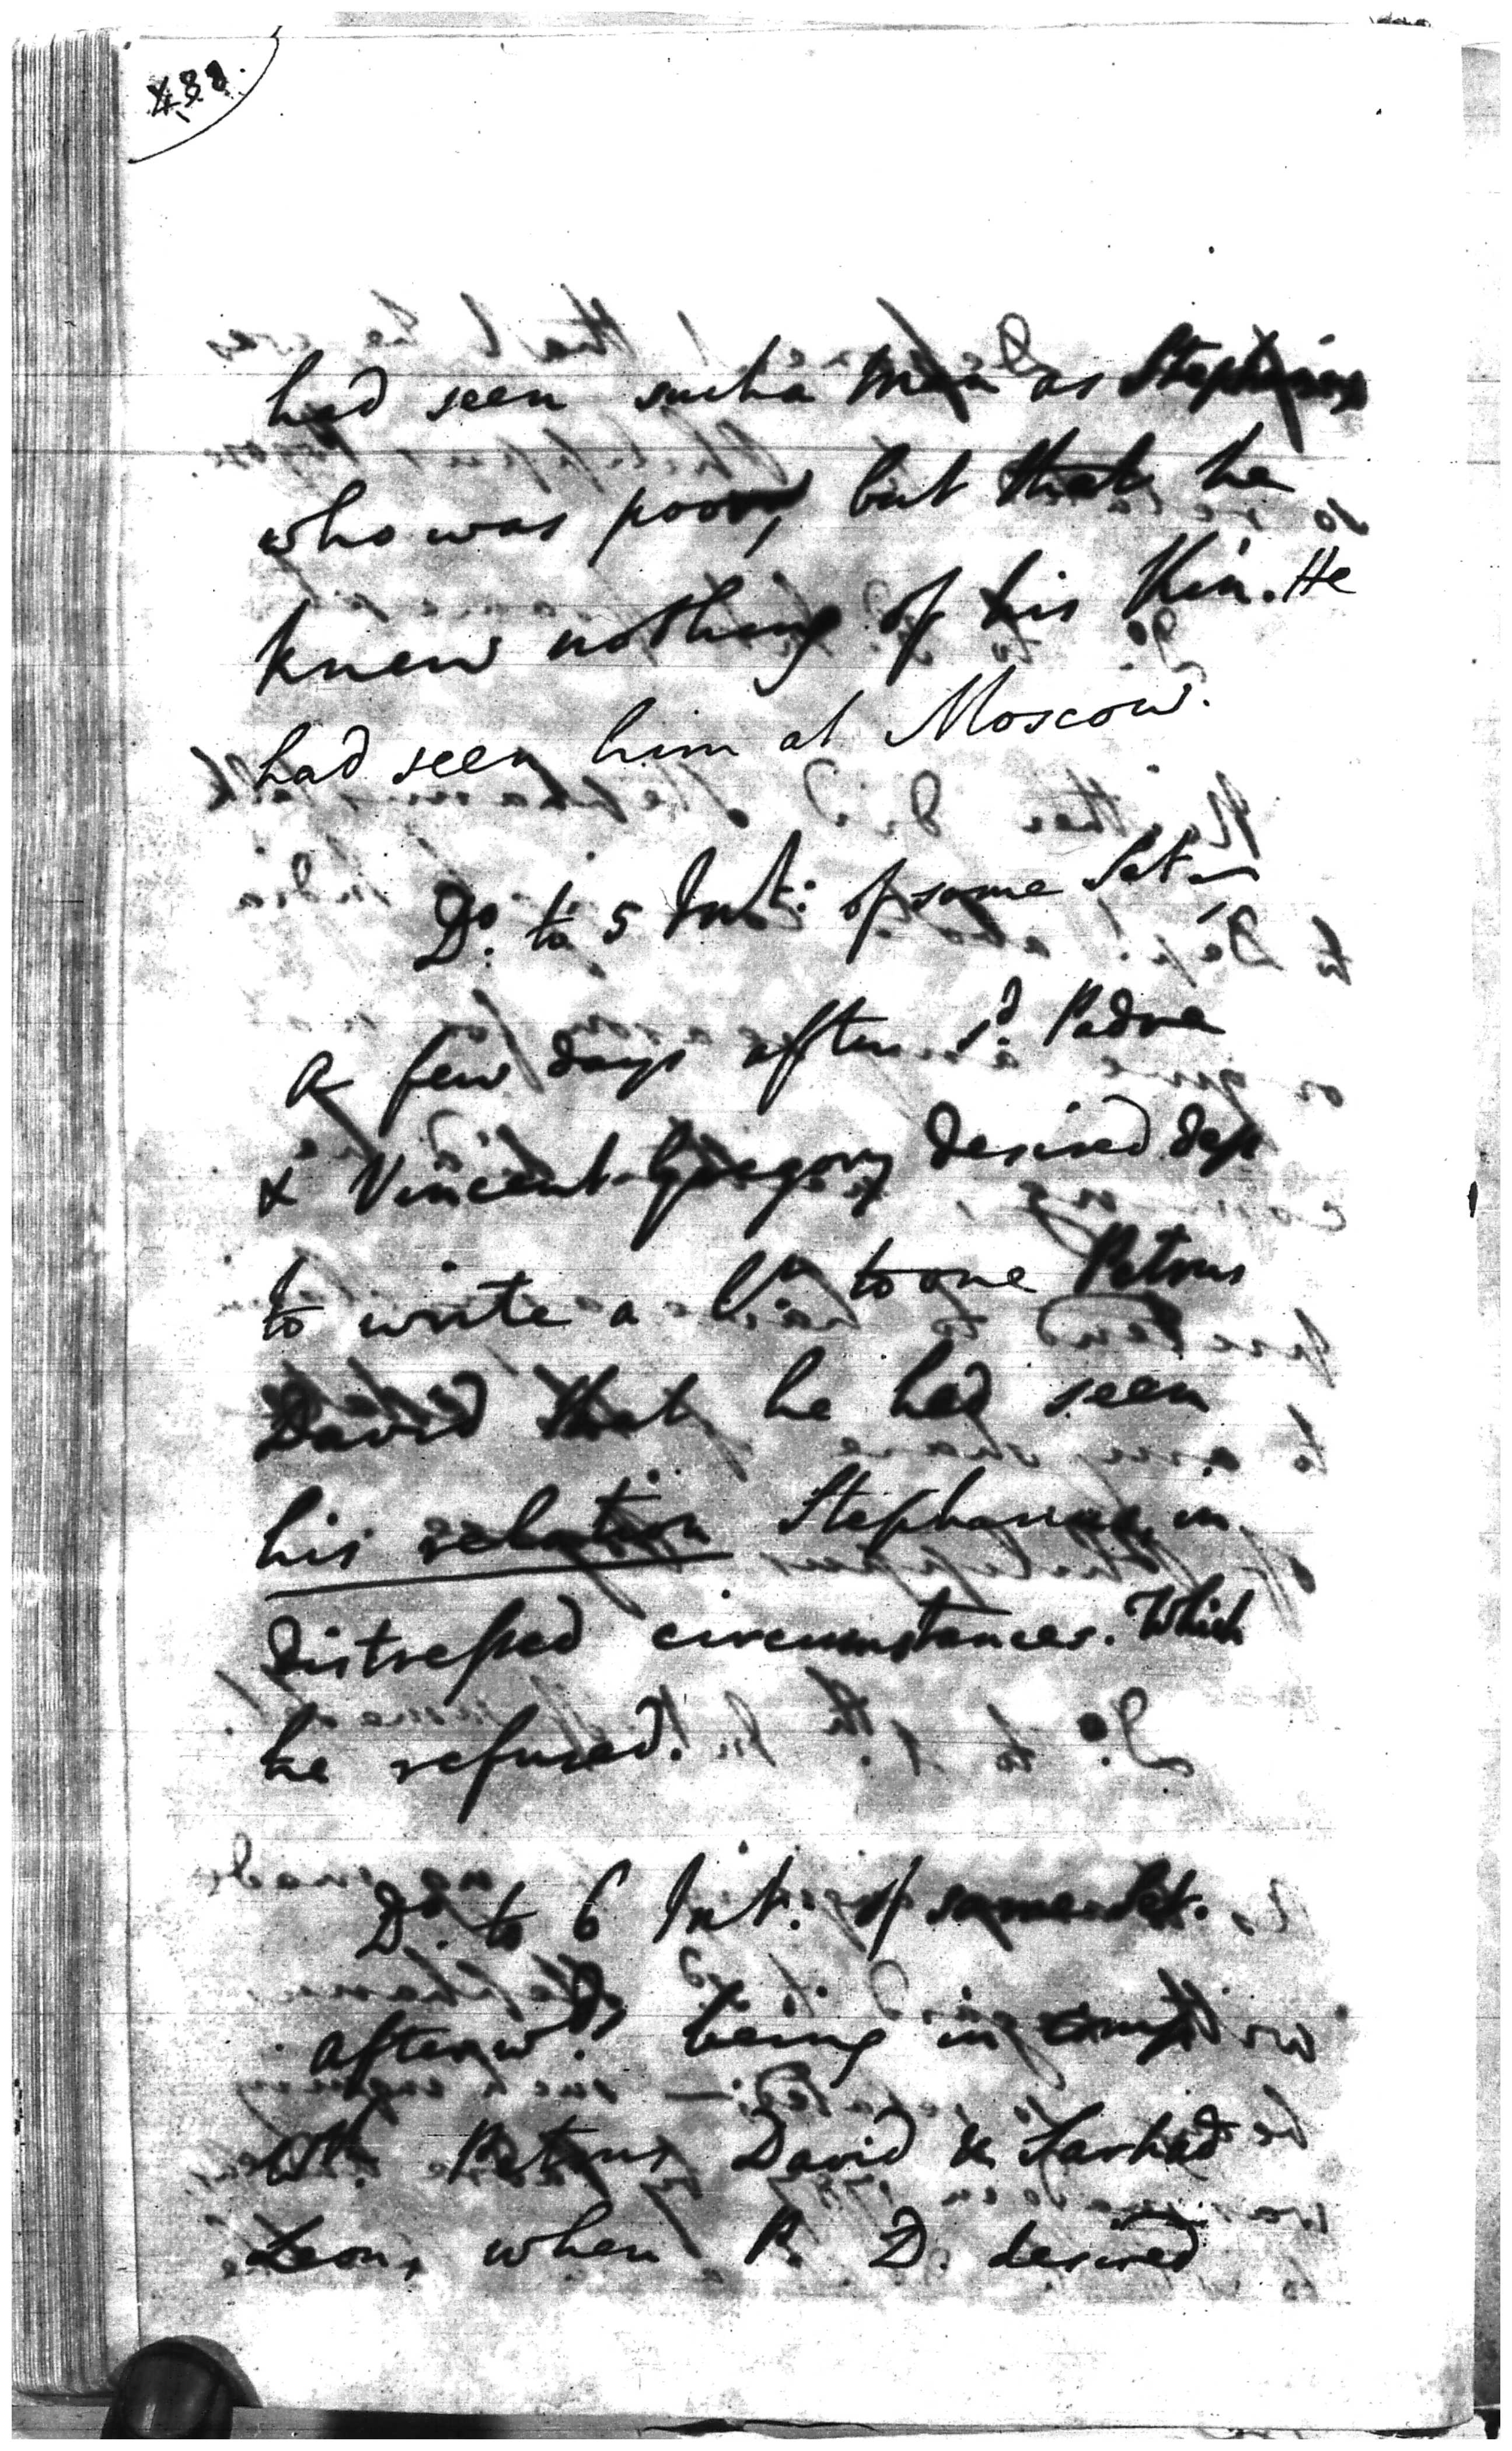 488.
had seen such a Man as Stephanus
who was poor, but that he
knew nothing of his Kin. He
had seen him at Moscow.
Do. to 5 Int: of same Set
A few days after sd. Padre
& Vincent Gregory desired Dept
to write a lr to one Petrus
David that he had seen
his relation Stephanus in
distressed circumstances. Which
he refused.
Do. to 6 Int: of same Set.
afterwds. being in
wth Petrus David & Sarhad
Leon, when P. D. desired